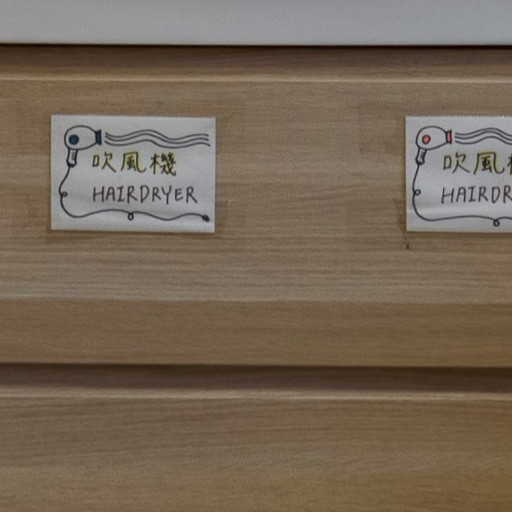 吹風機
HAIRDRYER
吹風
HAIRDR